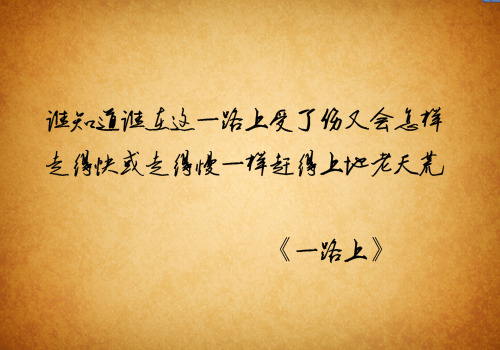 谁知道谁在这一路上受了伤又会怎样
走得快或走得慢一样赶得上地老天荒
《一路上》